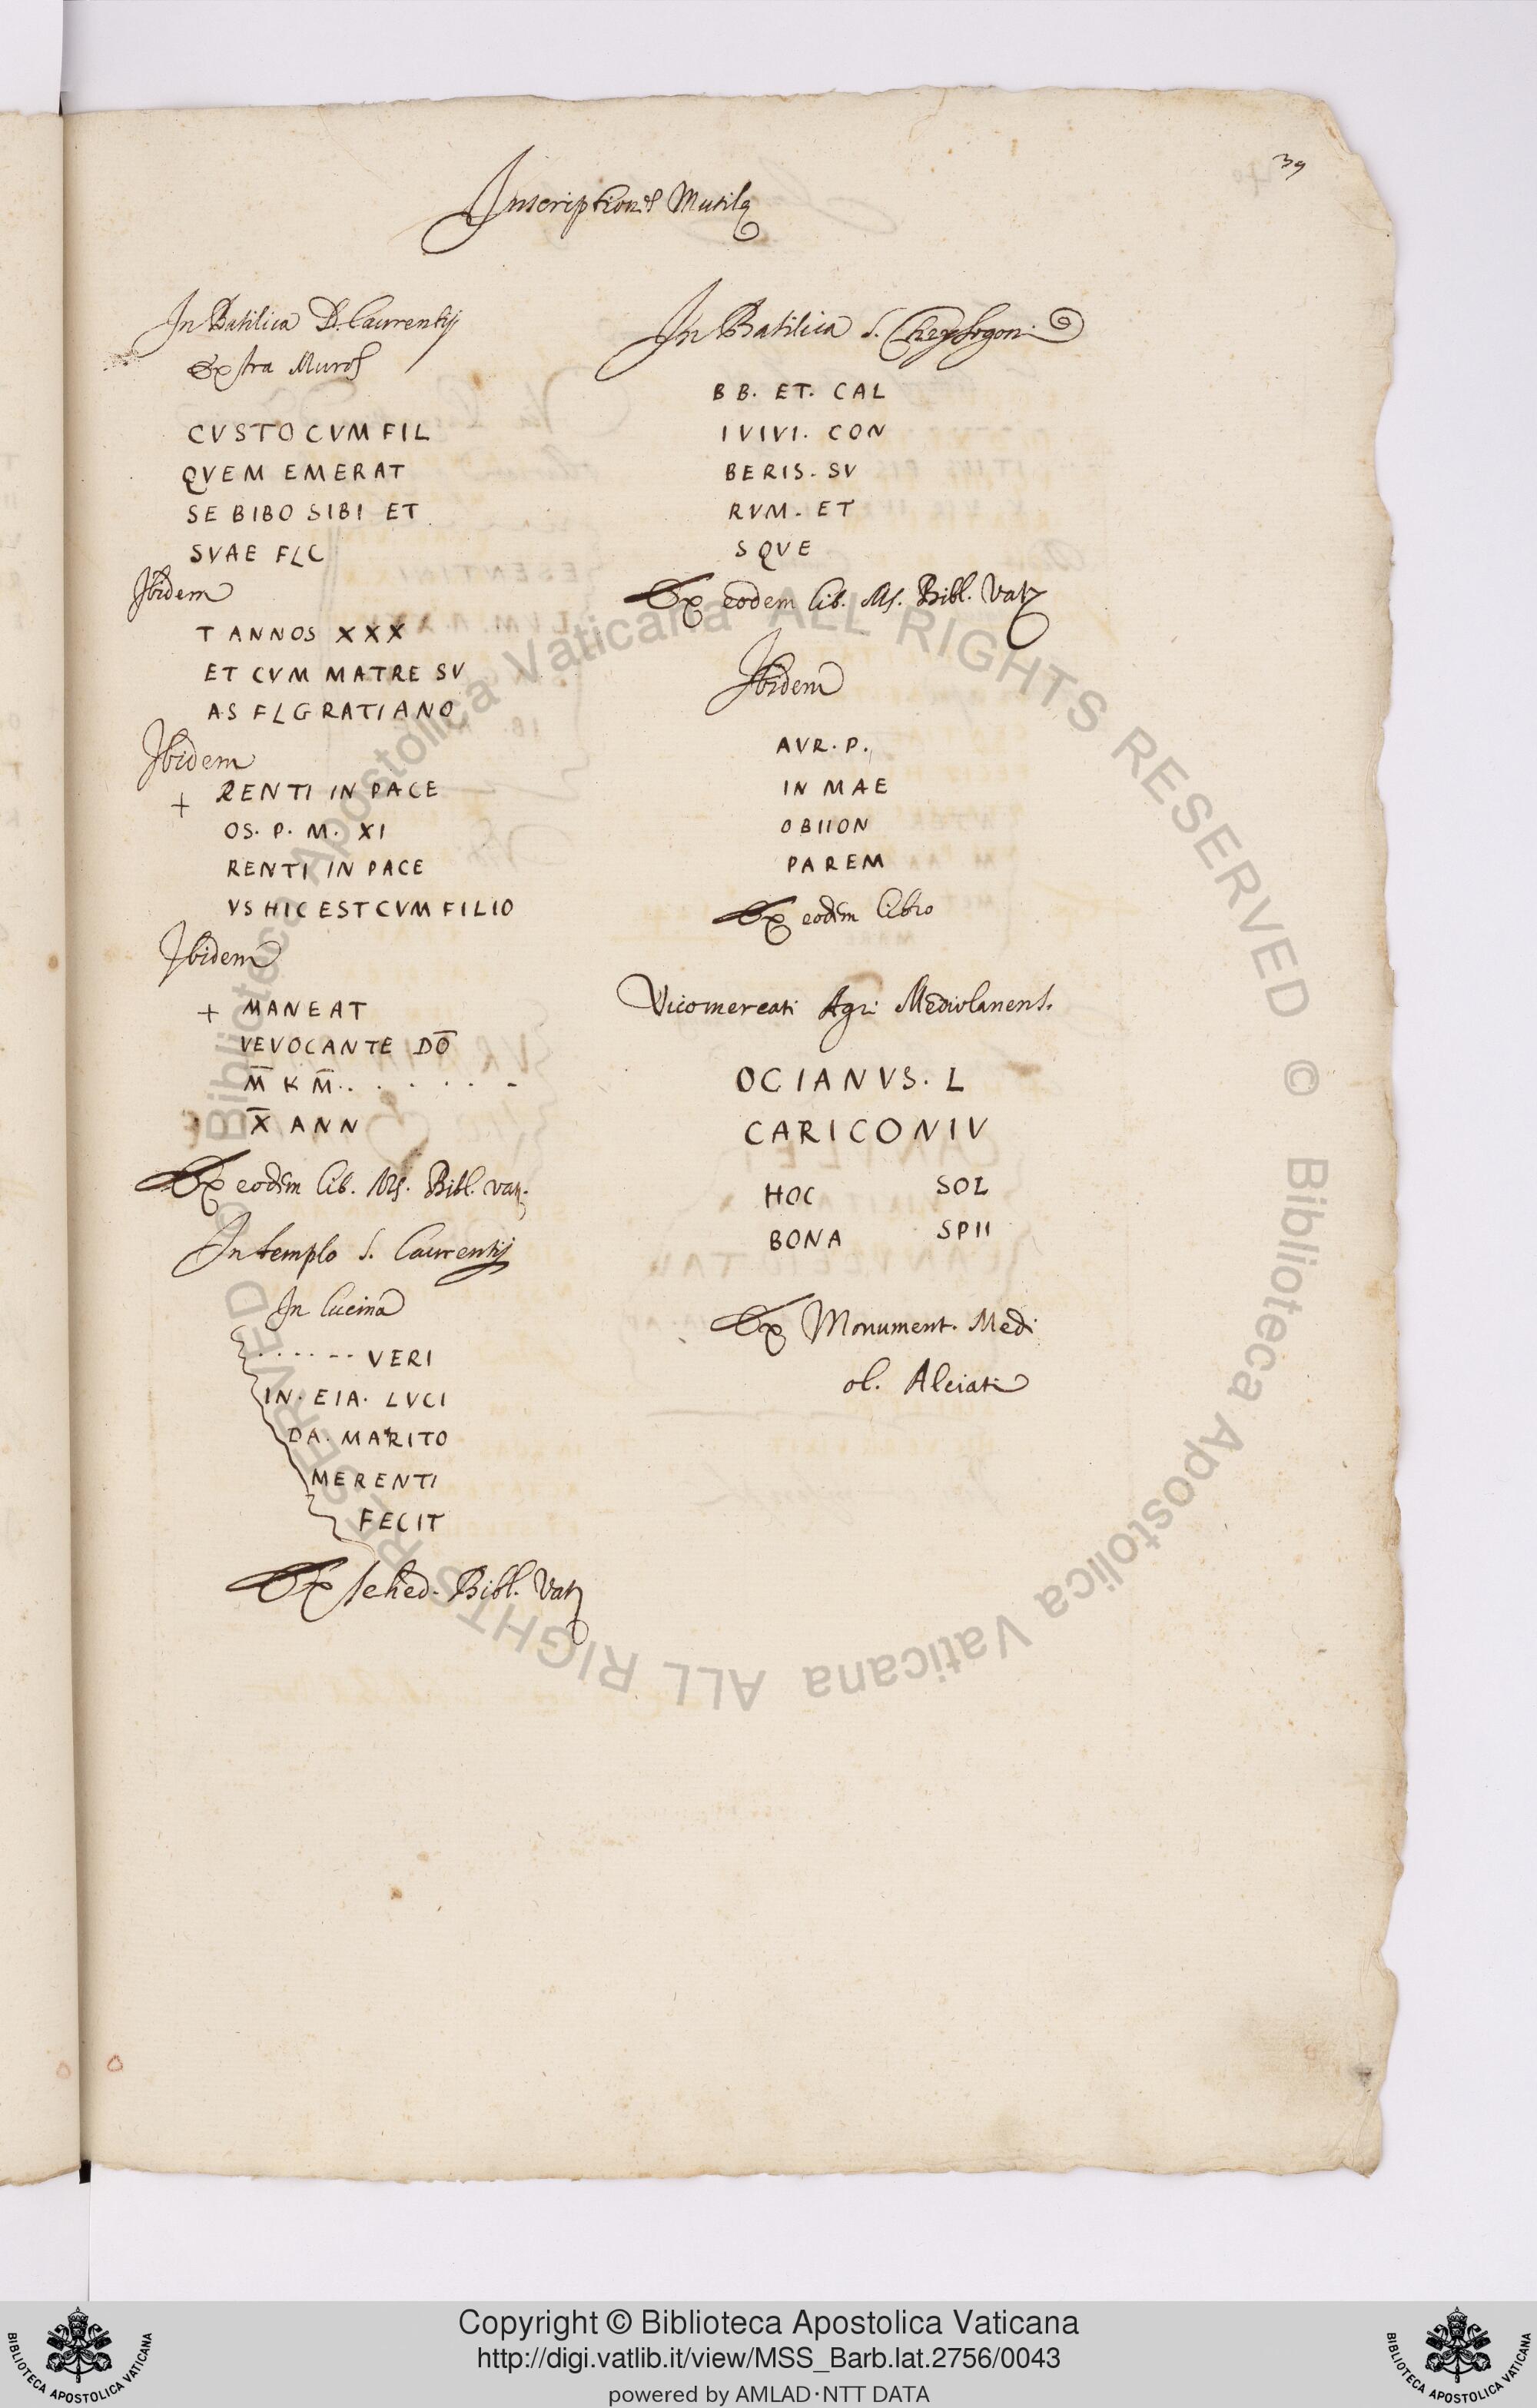 39
Inscriptiones Mutilę
In Basilica D. Laurentij
Extra Muros
CVSTO CVM FIL
QVEM EMERAT
SE BIBO SIBI ET
SVAE FLC
Ibidem
T ANNOS XXX
ET CVM MATRE SV
AS FLGRATIANO
Ibidem
+ RENTI IN PACE
OS. P. M. XI
RENTI IN PACE
VS HIC EST CVM FILIO
Ibidem
+ MANEAT
VEVOCANTE DŌ
M̄ K M̄. . . . . . -
X̄ ANN
Ex eodem lib. Ms. Bibl. Vat.
In templo S. Laurentij
In Lucina
. . . . . - - VERI
IN. EIA. LVCI
DA. MARITO
MERENTI
FECIT
Ex sched. Bibl. Vat.
In Basilica S. Chrysogoni
BB. ET. CAL
IVIVI. CON
BERIS. SV
RVM. ET
SQVE
Ex eodem lib. Ms. Bibl. Vat.
Ibidem
AVR. P.
IN MAE
OBIION
PAREM
Ex eodem libro
Vicomercati Agri Mediolanens.
OCIANVS. L
CARICONIV
HOC SOL
BONA SPII
Ex Monument. Medi
ol. Alciati
Biblioteca Apostolica Vaticana ALL RIGHTS RESERVED © Biblioteca Apostolica Vaticana ALL RIGHTS RESERVED ©
Copyright © Biblioteca Apostolica Vaticana
http://digi.vatlib.it/view/MSS_Barb.lat.2756/0043
powered by AMLAD·NTT DATA
BIBLIOTECA APOSTOLICA VATICANA
BIBLIOTECA APOSTOLICA VATICANA